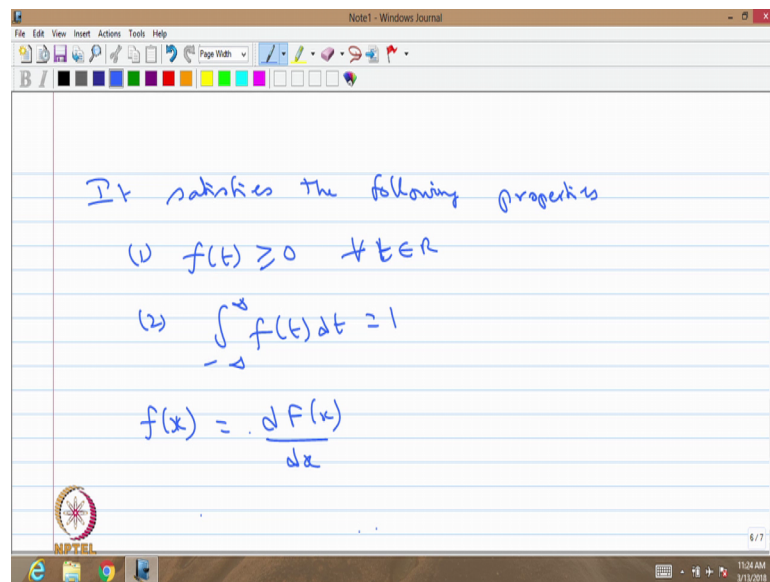 Note1 - Windows Journal
File Edit View Insert Actions Tools Help
Page Width
B I
It satisfies the following properties
(1) f(t) ≥ 0 ∀ t ∈ R
(2) ∫_{-∞}^{∞} f(t) dt = 1
f(x) = dF(x)/dx
NPTEL
6/7
11:24 AM
3/13/2018